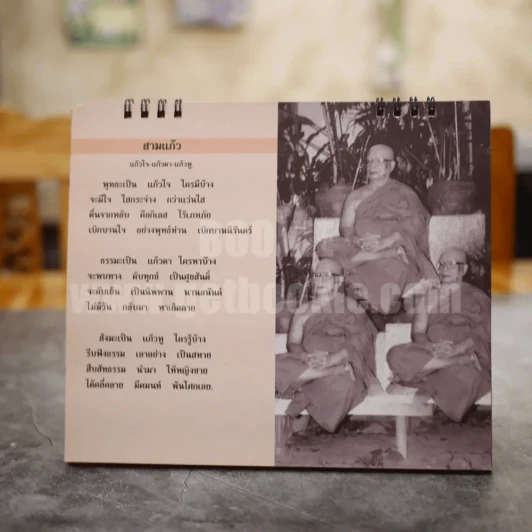 สามแก้ว
แก้วใจ-แก้วตา-แก้วหู.
พุทธะเป็น แก้วใจ ใครมีบ้าง
จะมีใจ ใสกระจ่าง กว่าแว่นใส
ตื่นจากหลับ คือกิเลส ไร้เภทภัย
เบิกบานใจ อย่างพุทธท่าน เบิกบานนิรันดร์
ธรรมะเป็น แก้วตา ใครหาบ้าง
จะพบทาง ดับทุกข์ เป็นสุขสันติ์
จะดับเย็น เป็นนิพพาน นานอนันต์
ไม่มีวัน กลับมา พาเกิดตาย
สังฆะเป็น แก้วหู ใครรู้บ้าง
รีบฟังธรรม เอาอย่าง เป็นสหาย
สืบสัทธรรม นำมา ให้หญิงชาย
ได้คลี่คลาย มืดมนท์ พ้นโศกเอย.